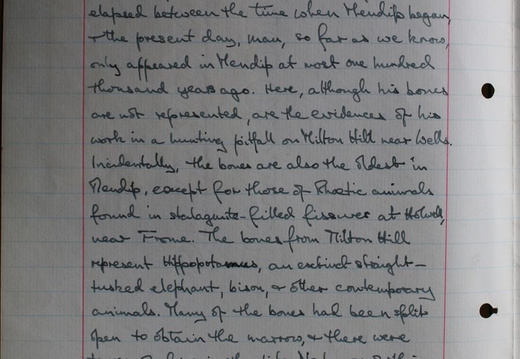 elapsed between the time when Mendip began,
& the present day, man, so far as we know,
only appeared in Mendip at most one hundred
thousand years ago. Here, although his bones
are not represented, are the evidences of his
work in a hunting pitfall on Milton Hill near Wells.
Incidentally, the bones are also the oldest in
Mendip, except for those of Rhaetic animals
found in stalagmite-filled fissures at Holwell,
near Frome. The bones from Milton Hill
represent Hippopotamus, an extinct straight-
tusked elephant, bison, & other contemporary
animals. Many of the bones had been split
open to obtain the marrow, & there were